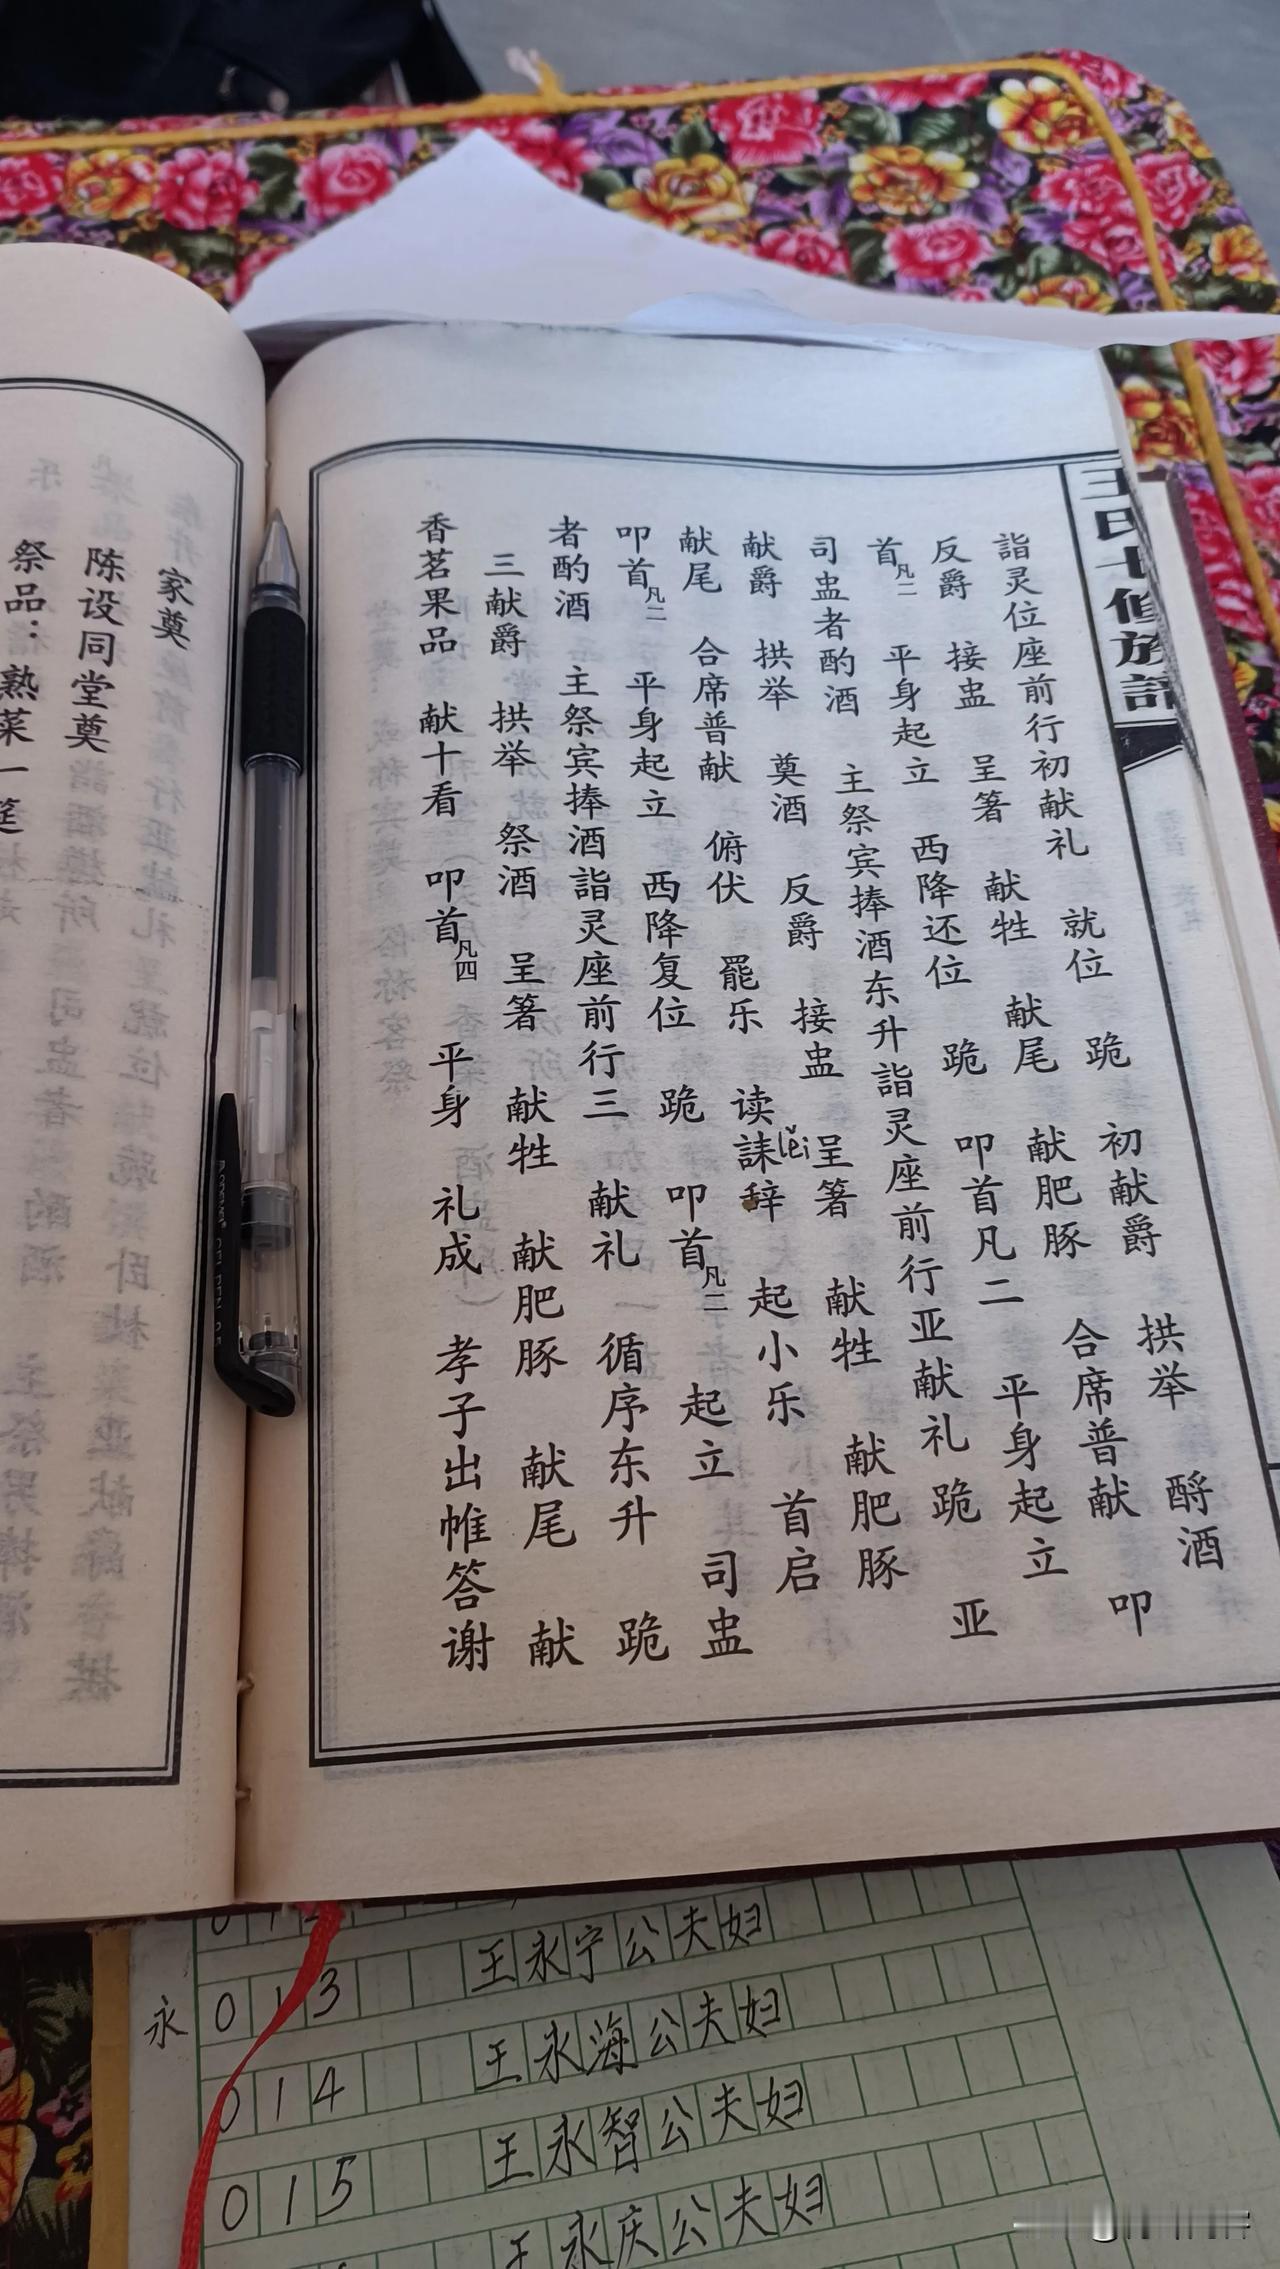 王氏七修族谱
诣灵位座前行初献礼 就位 跪 初献爵 拱举 酹酒
反爵 接盅 呈箸 献牲 献尾 献肥豚 合席普献 叩
首凡二 平身起立 西降还位 跪 叩首凡二 平身起立
司盅者酌酒 主祭宾捧酒东升诣灵座前行亚献礼 跪 亚
献爵 拱举 奠酒 反爵 接盅 呈箸 献牲 献肥豚
献尾 合席普献 俯伏 罢乐 读誄lěi辞 起小乐 首启
叩首凡二 平身起立 西降复位 跪 叩首凡二 起立 司盅
者酌酒 主祭宾捧酒诣灵座前行三献礼 循序东升 跪
三献爵 拱举 祭酒 呈箸 献牲 献肥豚 献尾 献
香茗果品 献十看 叩首凡四 平身 礼成 孝子出帷答谢
家奠
陈设同堂奠
祭品：熟菜一筵
013 王永宁公夫妇
永 014 王永海公夫妇
015 王永智公夫妇
王永庆公夫妇